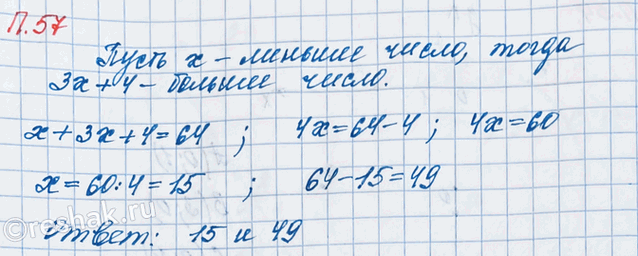 П.57
Пусть x – меньшее число, тогда
3x+4 – большее число.
x+3x+4=64 ; 4x=64-4 ; 4x=60
x=60:4=15 ; 64-15=49
Ответ: 15 и 49
reshak.ru